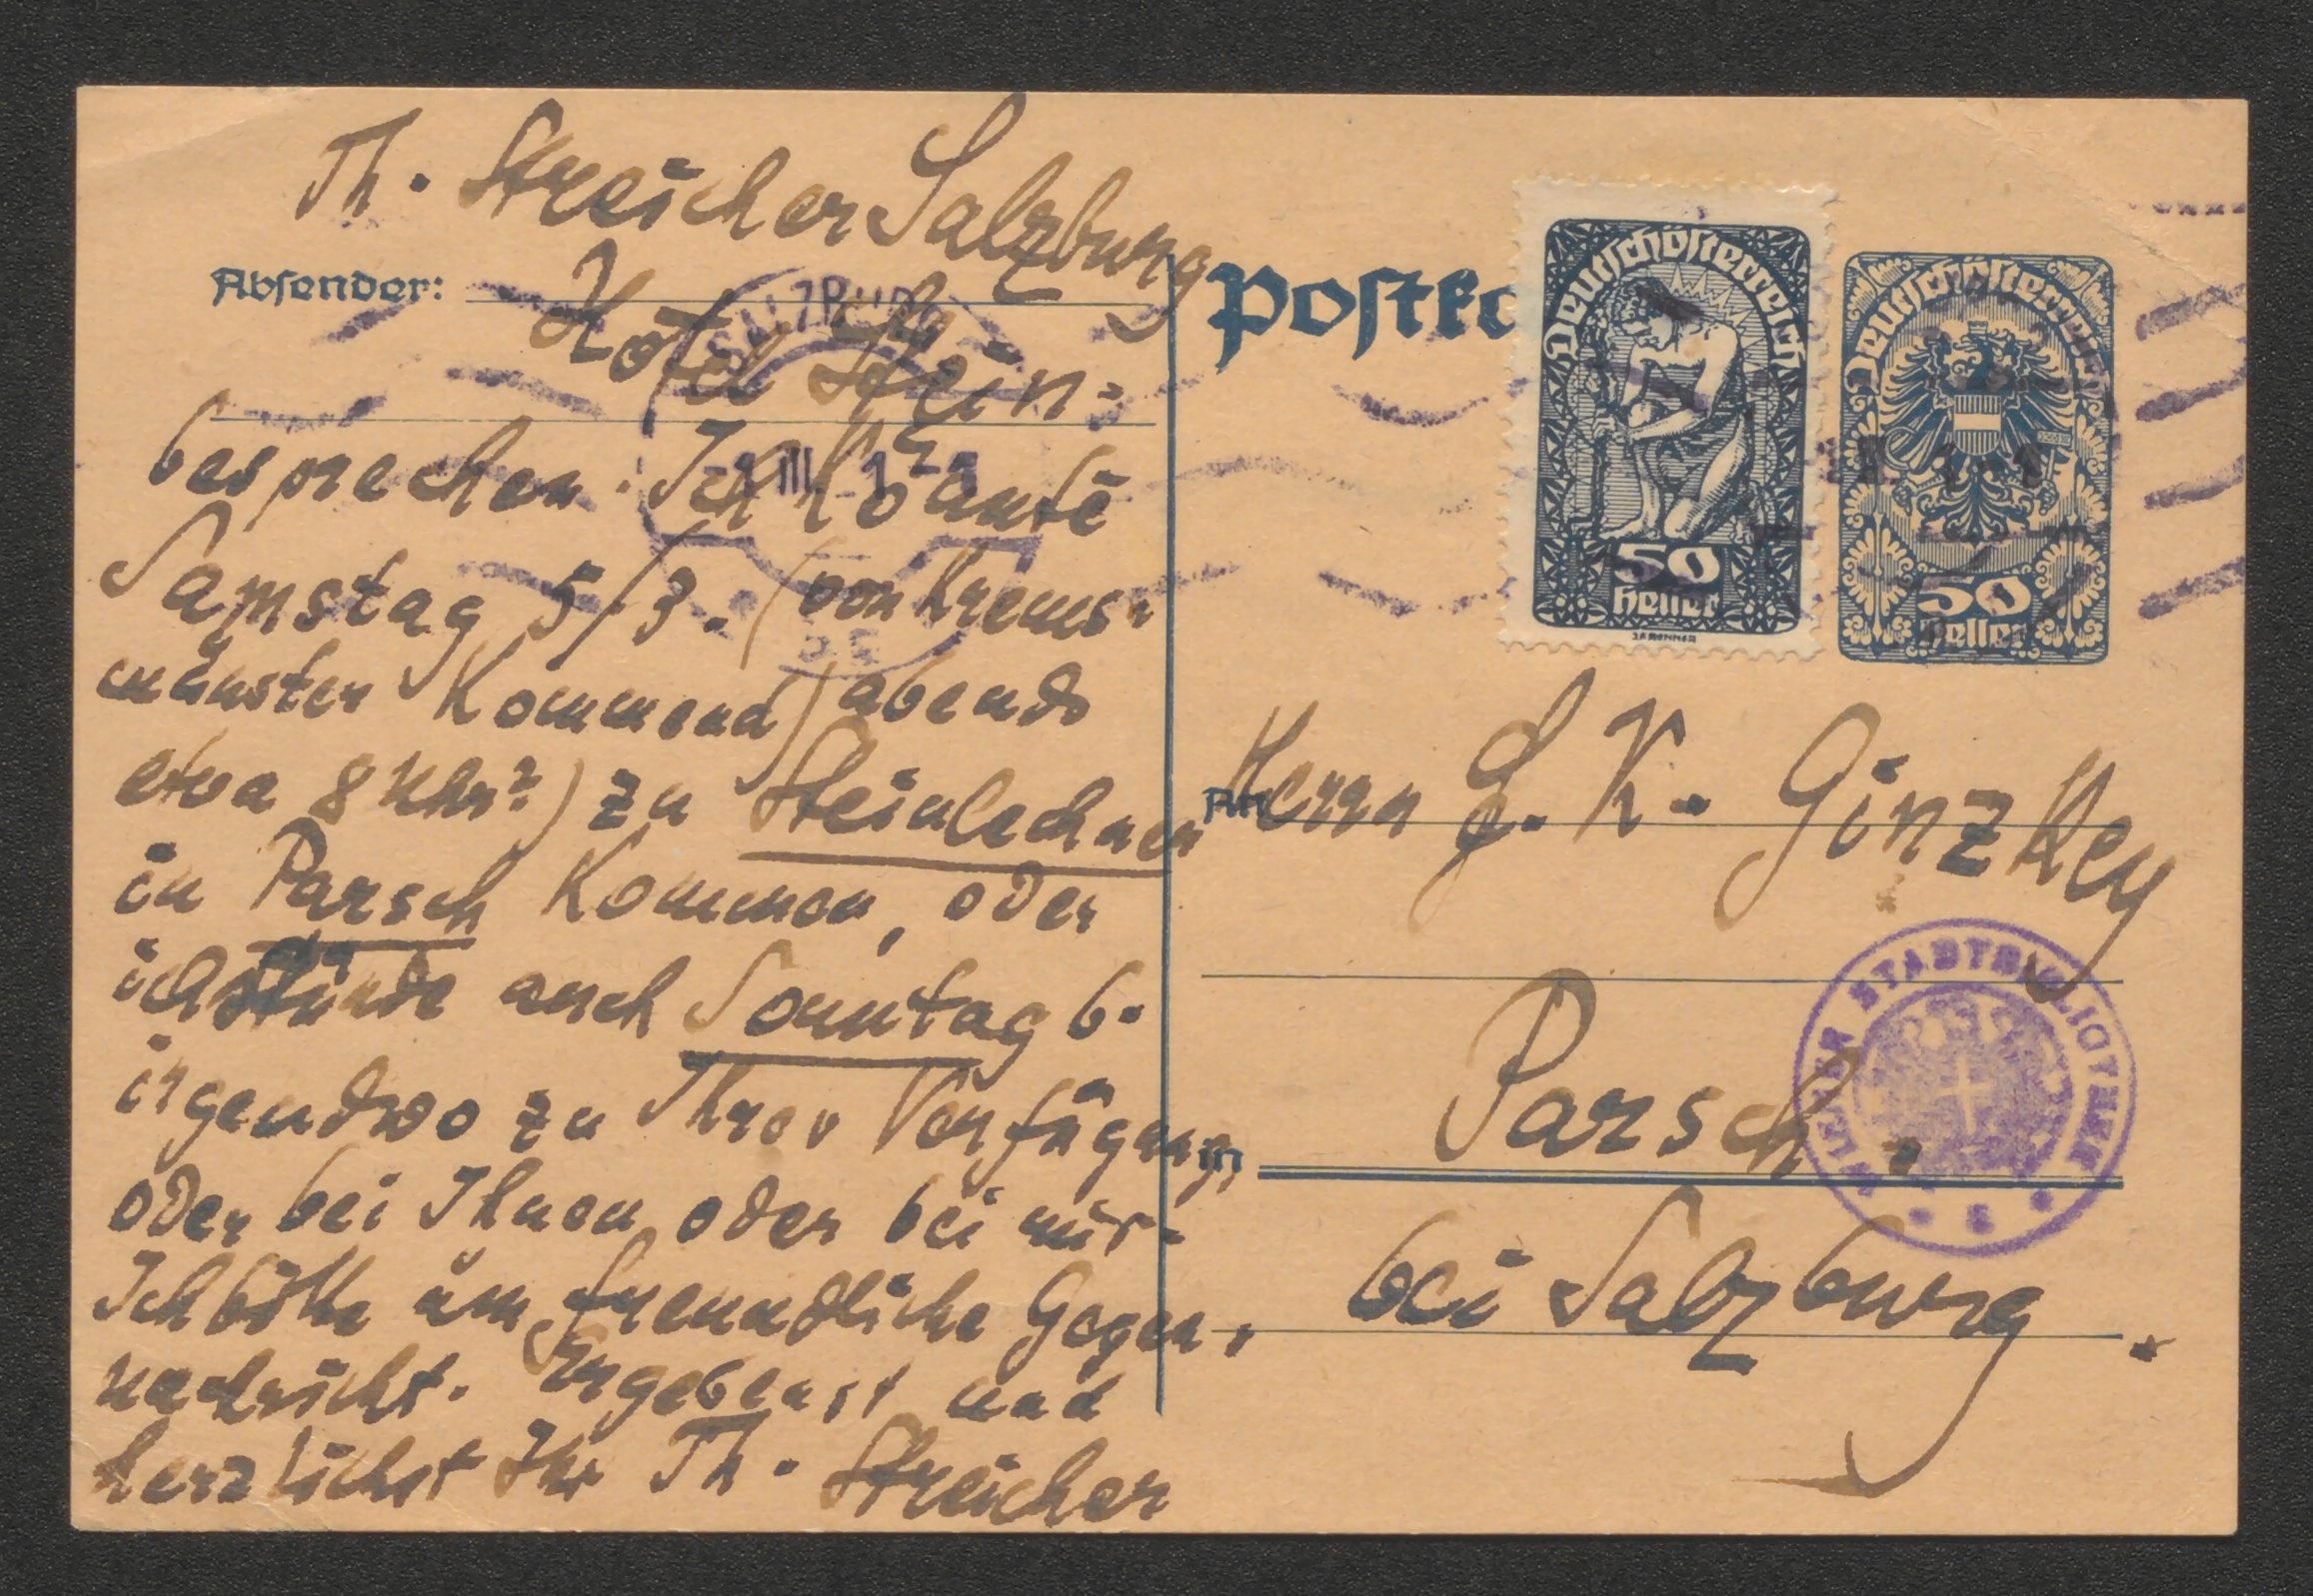 Th. Streicher Salzburg
Absender:
Hotel Stein.
besprechen. Ich könnte
Samstag 5/3. (von Krems-
münster kommend) abends
etwa 8 Uhr?) zu Steinlechner
in Parsch kommen, oder
ich stünde auch Sonntag 6.
irgendwo zu Ihrer Verfügung
oder bei Ihnen oder bei mir.
Ich bitte um freundliche Gegen-
nachricht. Ergebenst und
herzlichst Ihr Th. Streicher
Postkar
Deutschösterreich
50
Heller
Deutschösterreich
50
Heller
SALZBURG
An Herrn F. K. Ginzkey
WIENER STADTBIBLIOTHEK
in Parsch.
bei Salzburg.